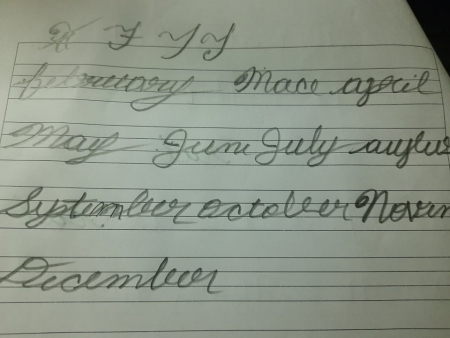 F Y Y
February Mace april
May June July augus
September october Novem
December